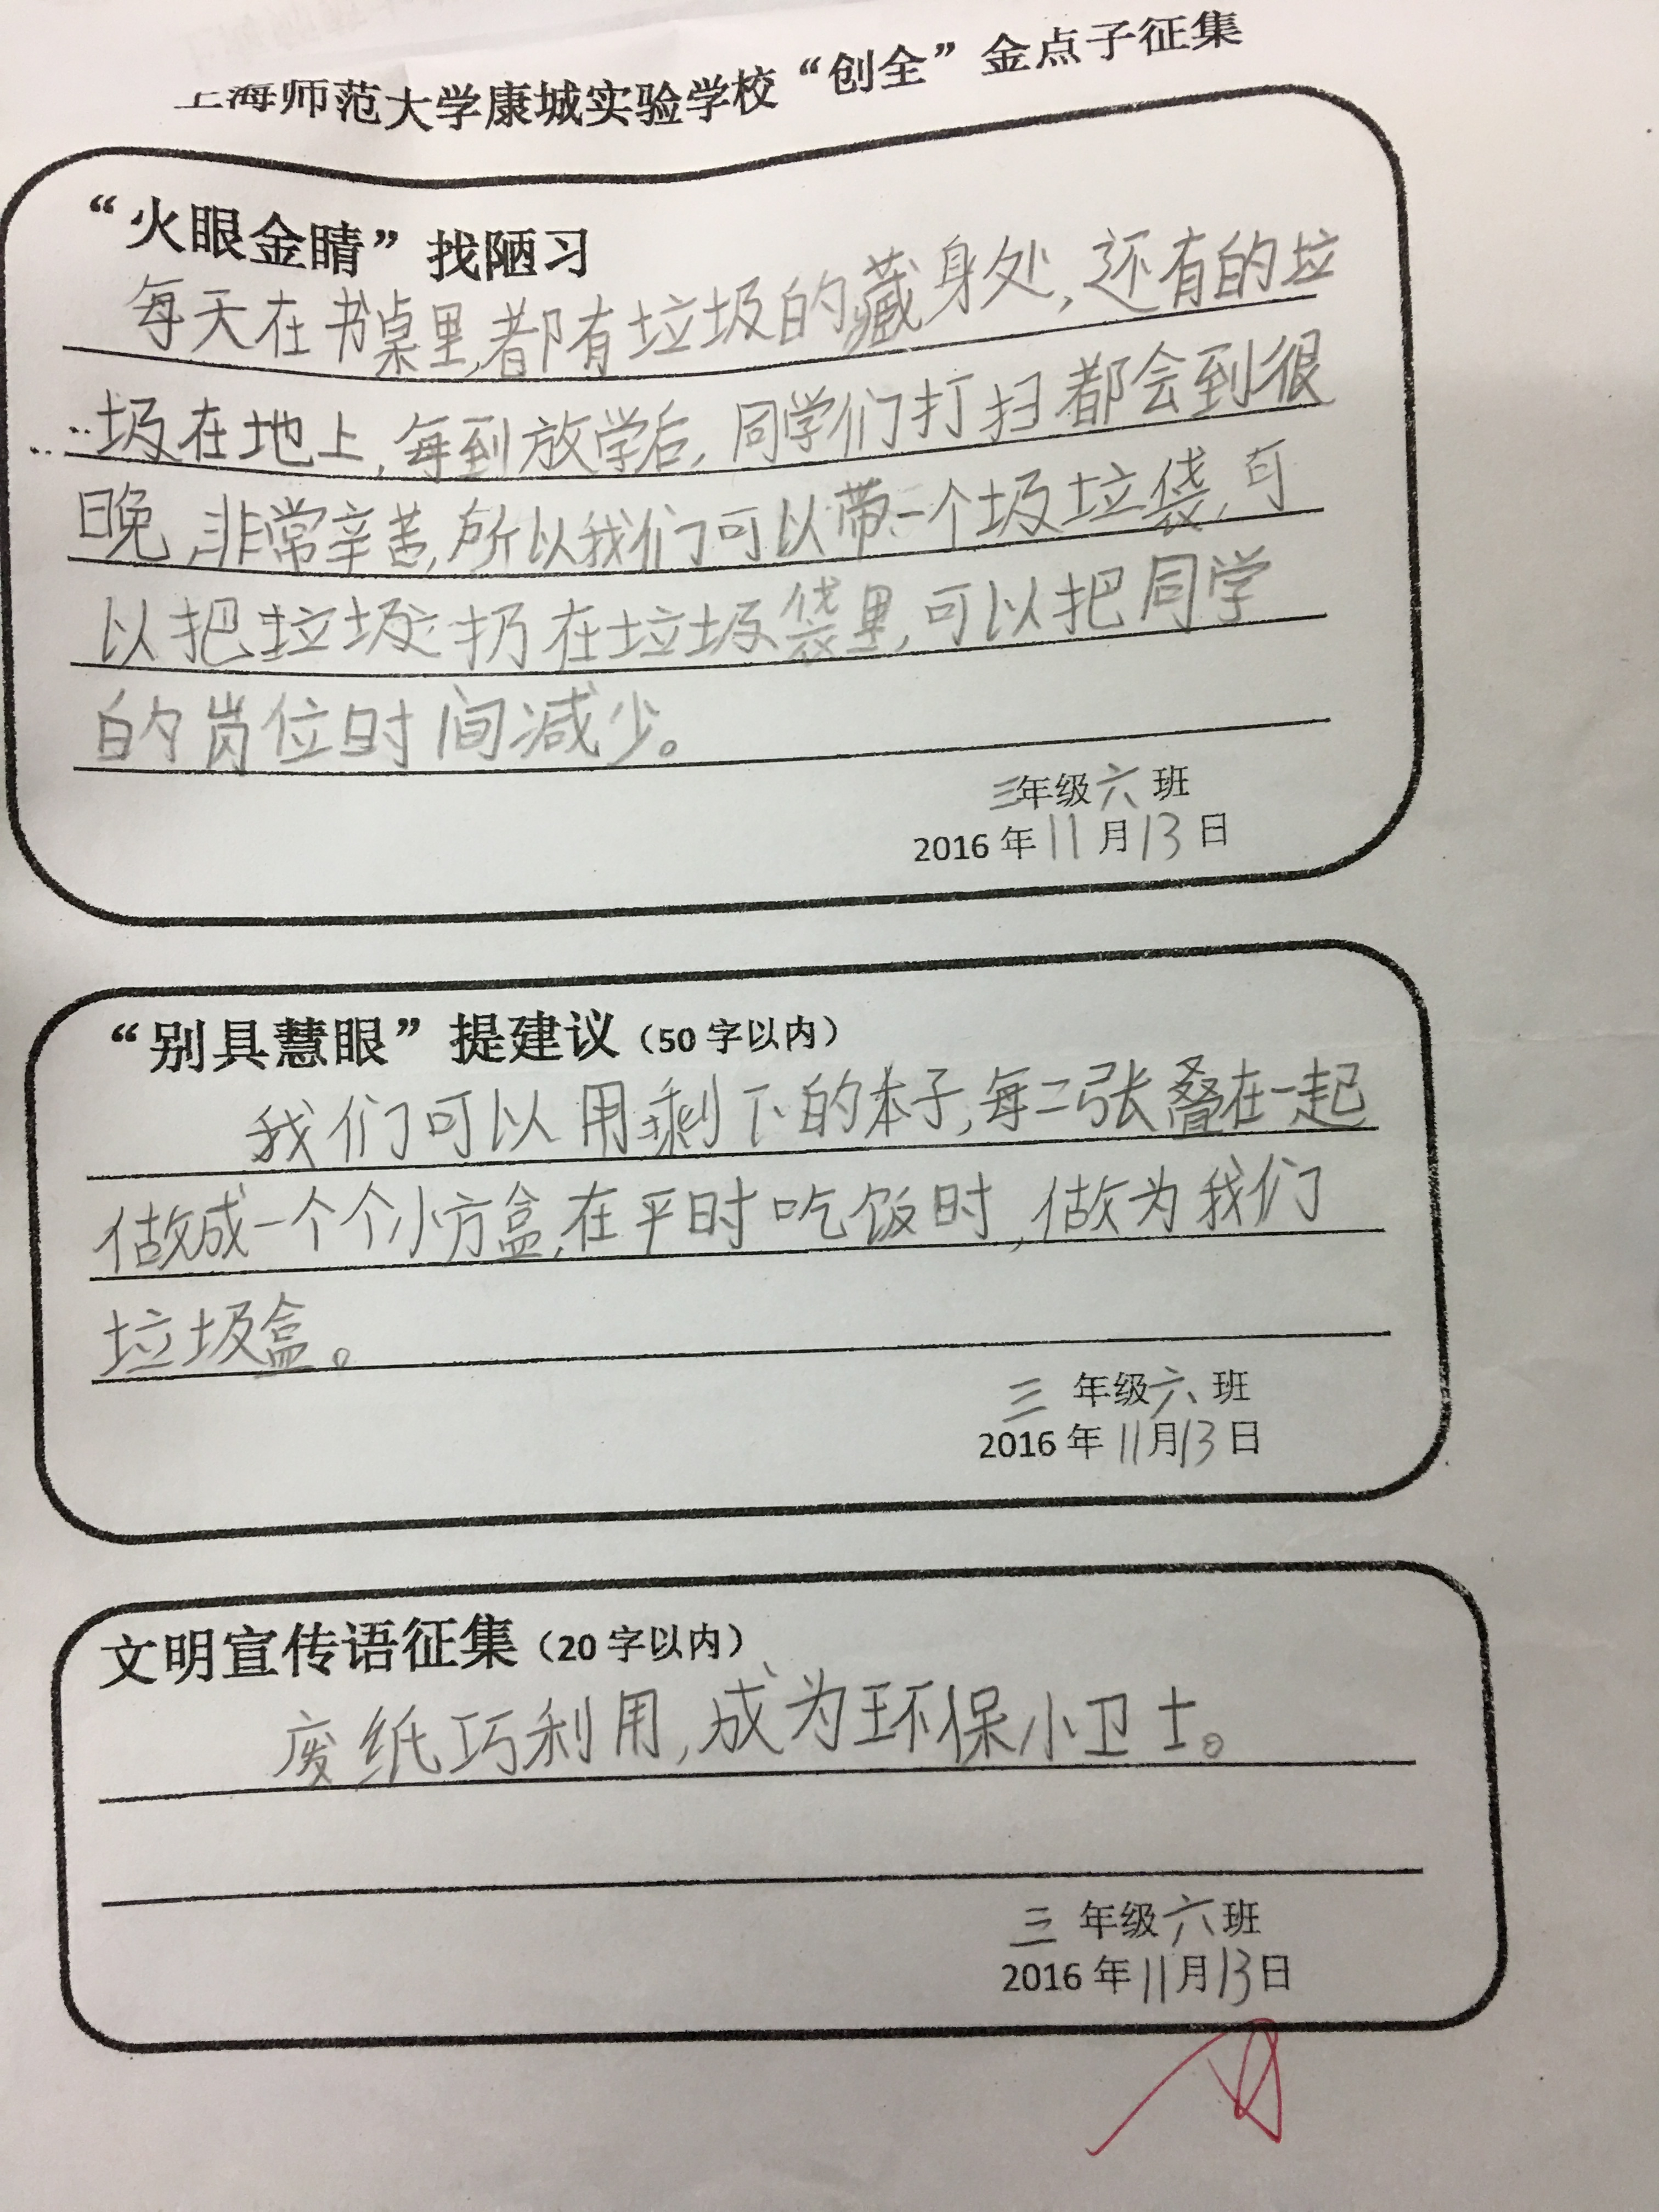 上海师范大学康城实验学校“创全”金点子征集
“火眼金睛”找陋习
每天在书桌里,都有垃圾的藏身处,还有的垃
圾在地上,每到放学后,同学们打扫都会到很
晚,非常辛苦,所以我们可以带一个圾垃袋,可
以把垃圾扔在垃圾袋里,可以把同学
的岗位时间减少。
三年级六班
2016年11月13日
“别具慧眼”提建议(50字以内)
我们可以用剩下的本子,每二张叠在一起
做成一个个小方盒,在平时吃饭时,做为我们
垃圾盒。
三年级六班
2016年11月13日
文明宣传语征集(20字以内)
废纸巧利用,成为环保小卫士。
三年级六班
2016年11月13日